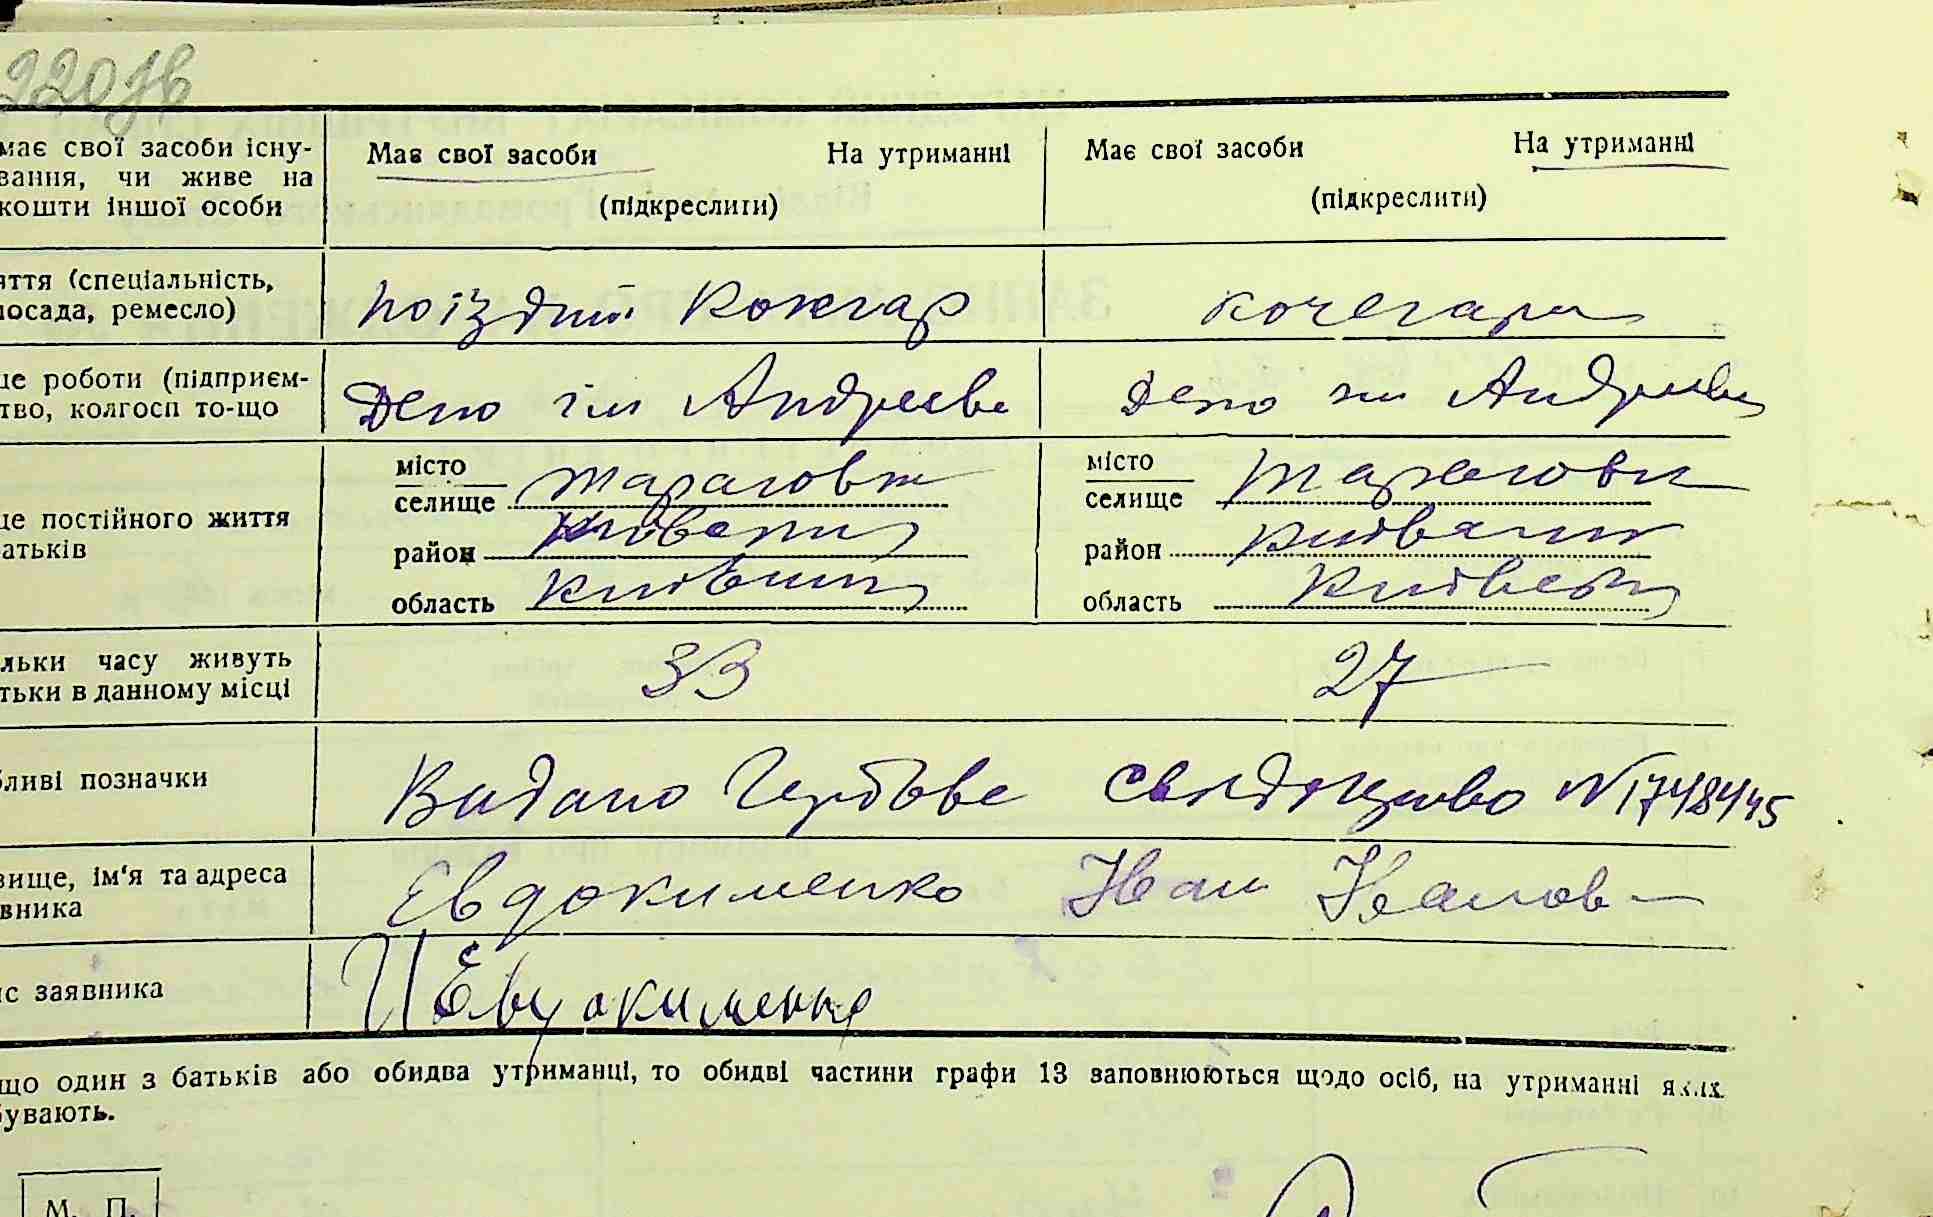 має свої засоби існу- Має свої засоби На утриманні Має свої засоби На утриманні
вання, чи живе на
кошти іншої особи (підкреслити) (підкреслити)
яття (спеціальність, поїздний Кожгар кочегара
посада, ремесло)
це роботи (підприєм- Депо ім Андреєва Депо ім Андреєва
тво, колгосп то-що
місто місто
селище селище
це постійного життя
район район
атьків
область область
льки часу живуть 33 27
тьки в данному місці
бливі позначки Видано Гербове свидоцтво N 1748445
вище, ім'я та адреса Евдокименко Іван Іванов
вника
с заявника И Евдокименко
що один з батьків або обидва утриманці, то обидві частини графи 13 заповнюються щодо осіб, на утриманні яких
бувають.
М. П.